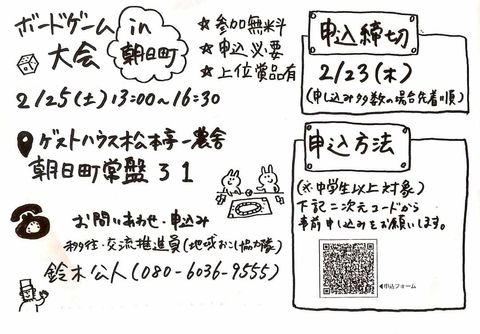 ボードゲーム in
大会 朝日町
☆参加無料
☆申込必要
☆上位賞品有
2/25(土)13:00~16:30
ゲストハウス松本亭一農舎
朝日町常盤31
お問いあわせ・申込み
移住・交流推進員(地域おこし協力隊)
鈴木公人(080-6036-9555)
申込締切
2/23(木)
(申し込み多数の場合先着順)
申込方法
(※中学生以上対象)
下記二次元コードから
事前申し込みをお願いします。
◀申込フォーム